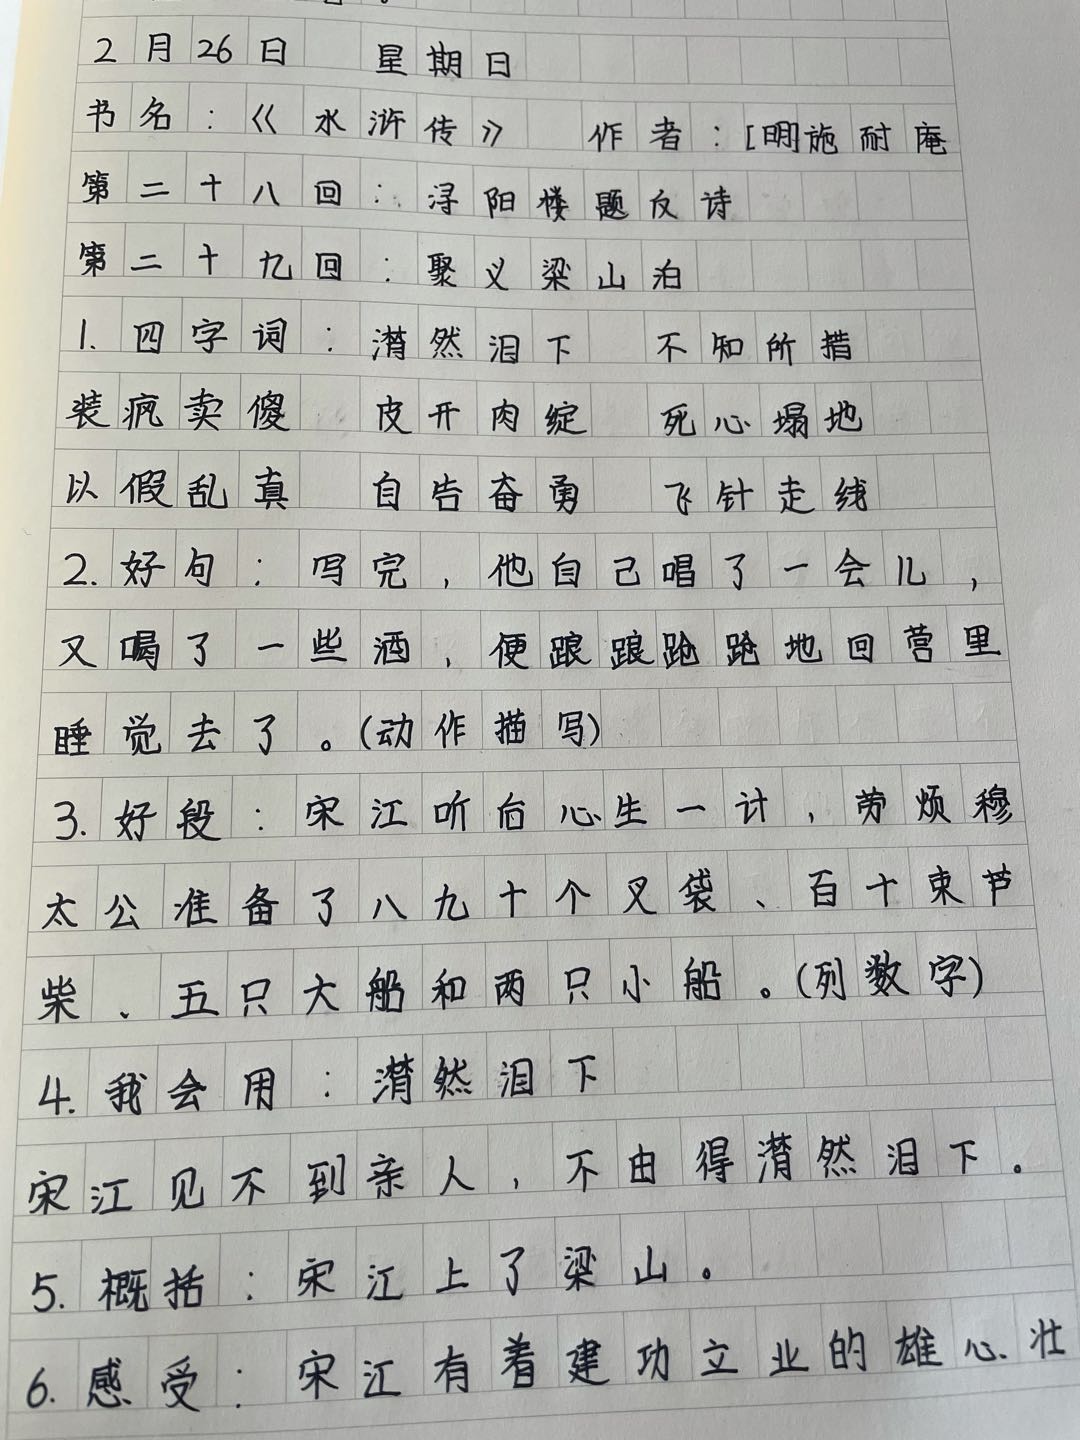 2月26日 星期日
书名：《水浒传》 作者：[明]施耐庵
第二十八回：浔阳楼题反诗
第二十九回：聚义梁山泊
1.四字词：潸然泪下 不知所措
装疯卖傻 皮开肉绽 死心塌地
以假乱真 自告奋勇 飞针走线
2.好句：写完，他自己唱了一会儿，
又喝了一些酒，便踉踉跄跄地回营里
睡觉去了。(动作描写)
3.好段：宋江听后心生一计，劳烦穆
太公准备了八九十个叉袋、百十束芦
柴、五只大船和两只小船。(列数字)
4.我会用：潸然泪下
宋江见不到亲人，不由得潸然泪下。
5.概括：宋江上了梁山。
6.感受：宋江有着建功立业的雄心壮